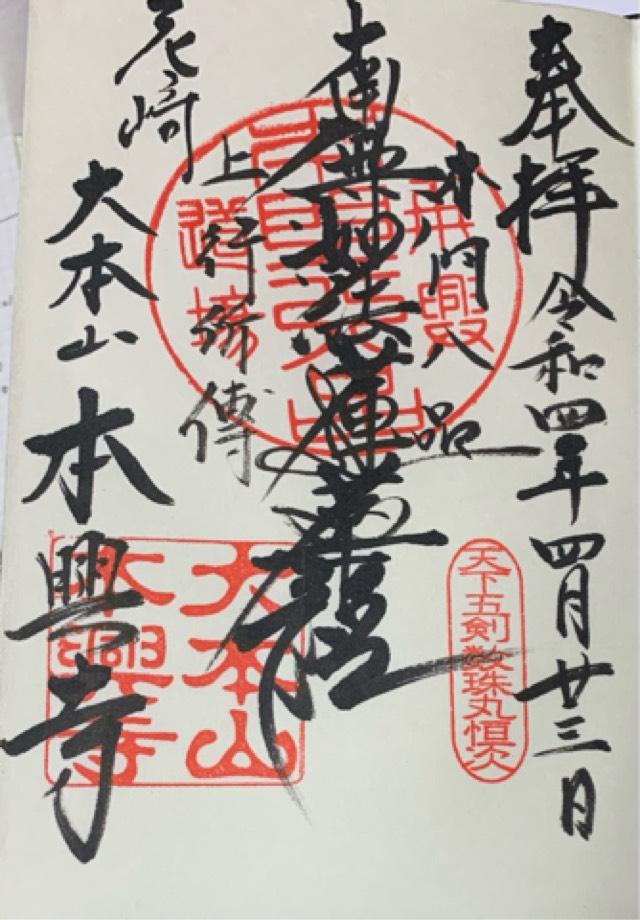 奉拝 令和四年四月廿三日
本門八品
南無妙法蓮華経
上行所傳
尼崎
大本山 本興寺
天下五剣数珠丸恒次
大本山
本興寺